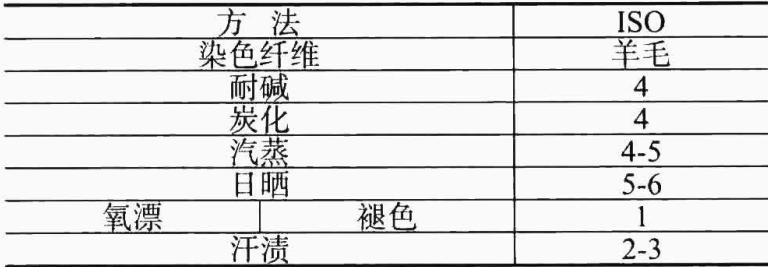 方 法 ISO
染色纤维 羊毛
耐碱 4
炭化 4
汽蒸 4-5
日晒 5-6
氧漂 褪色 1
汗渍 2-3